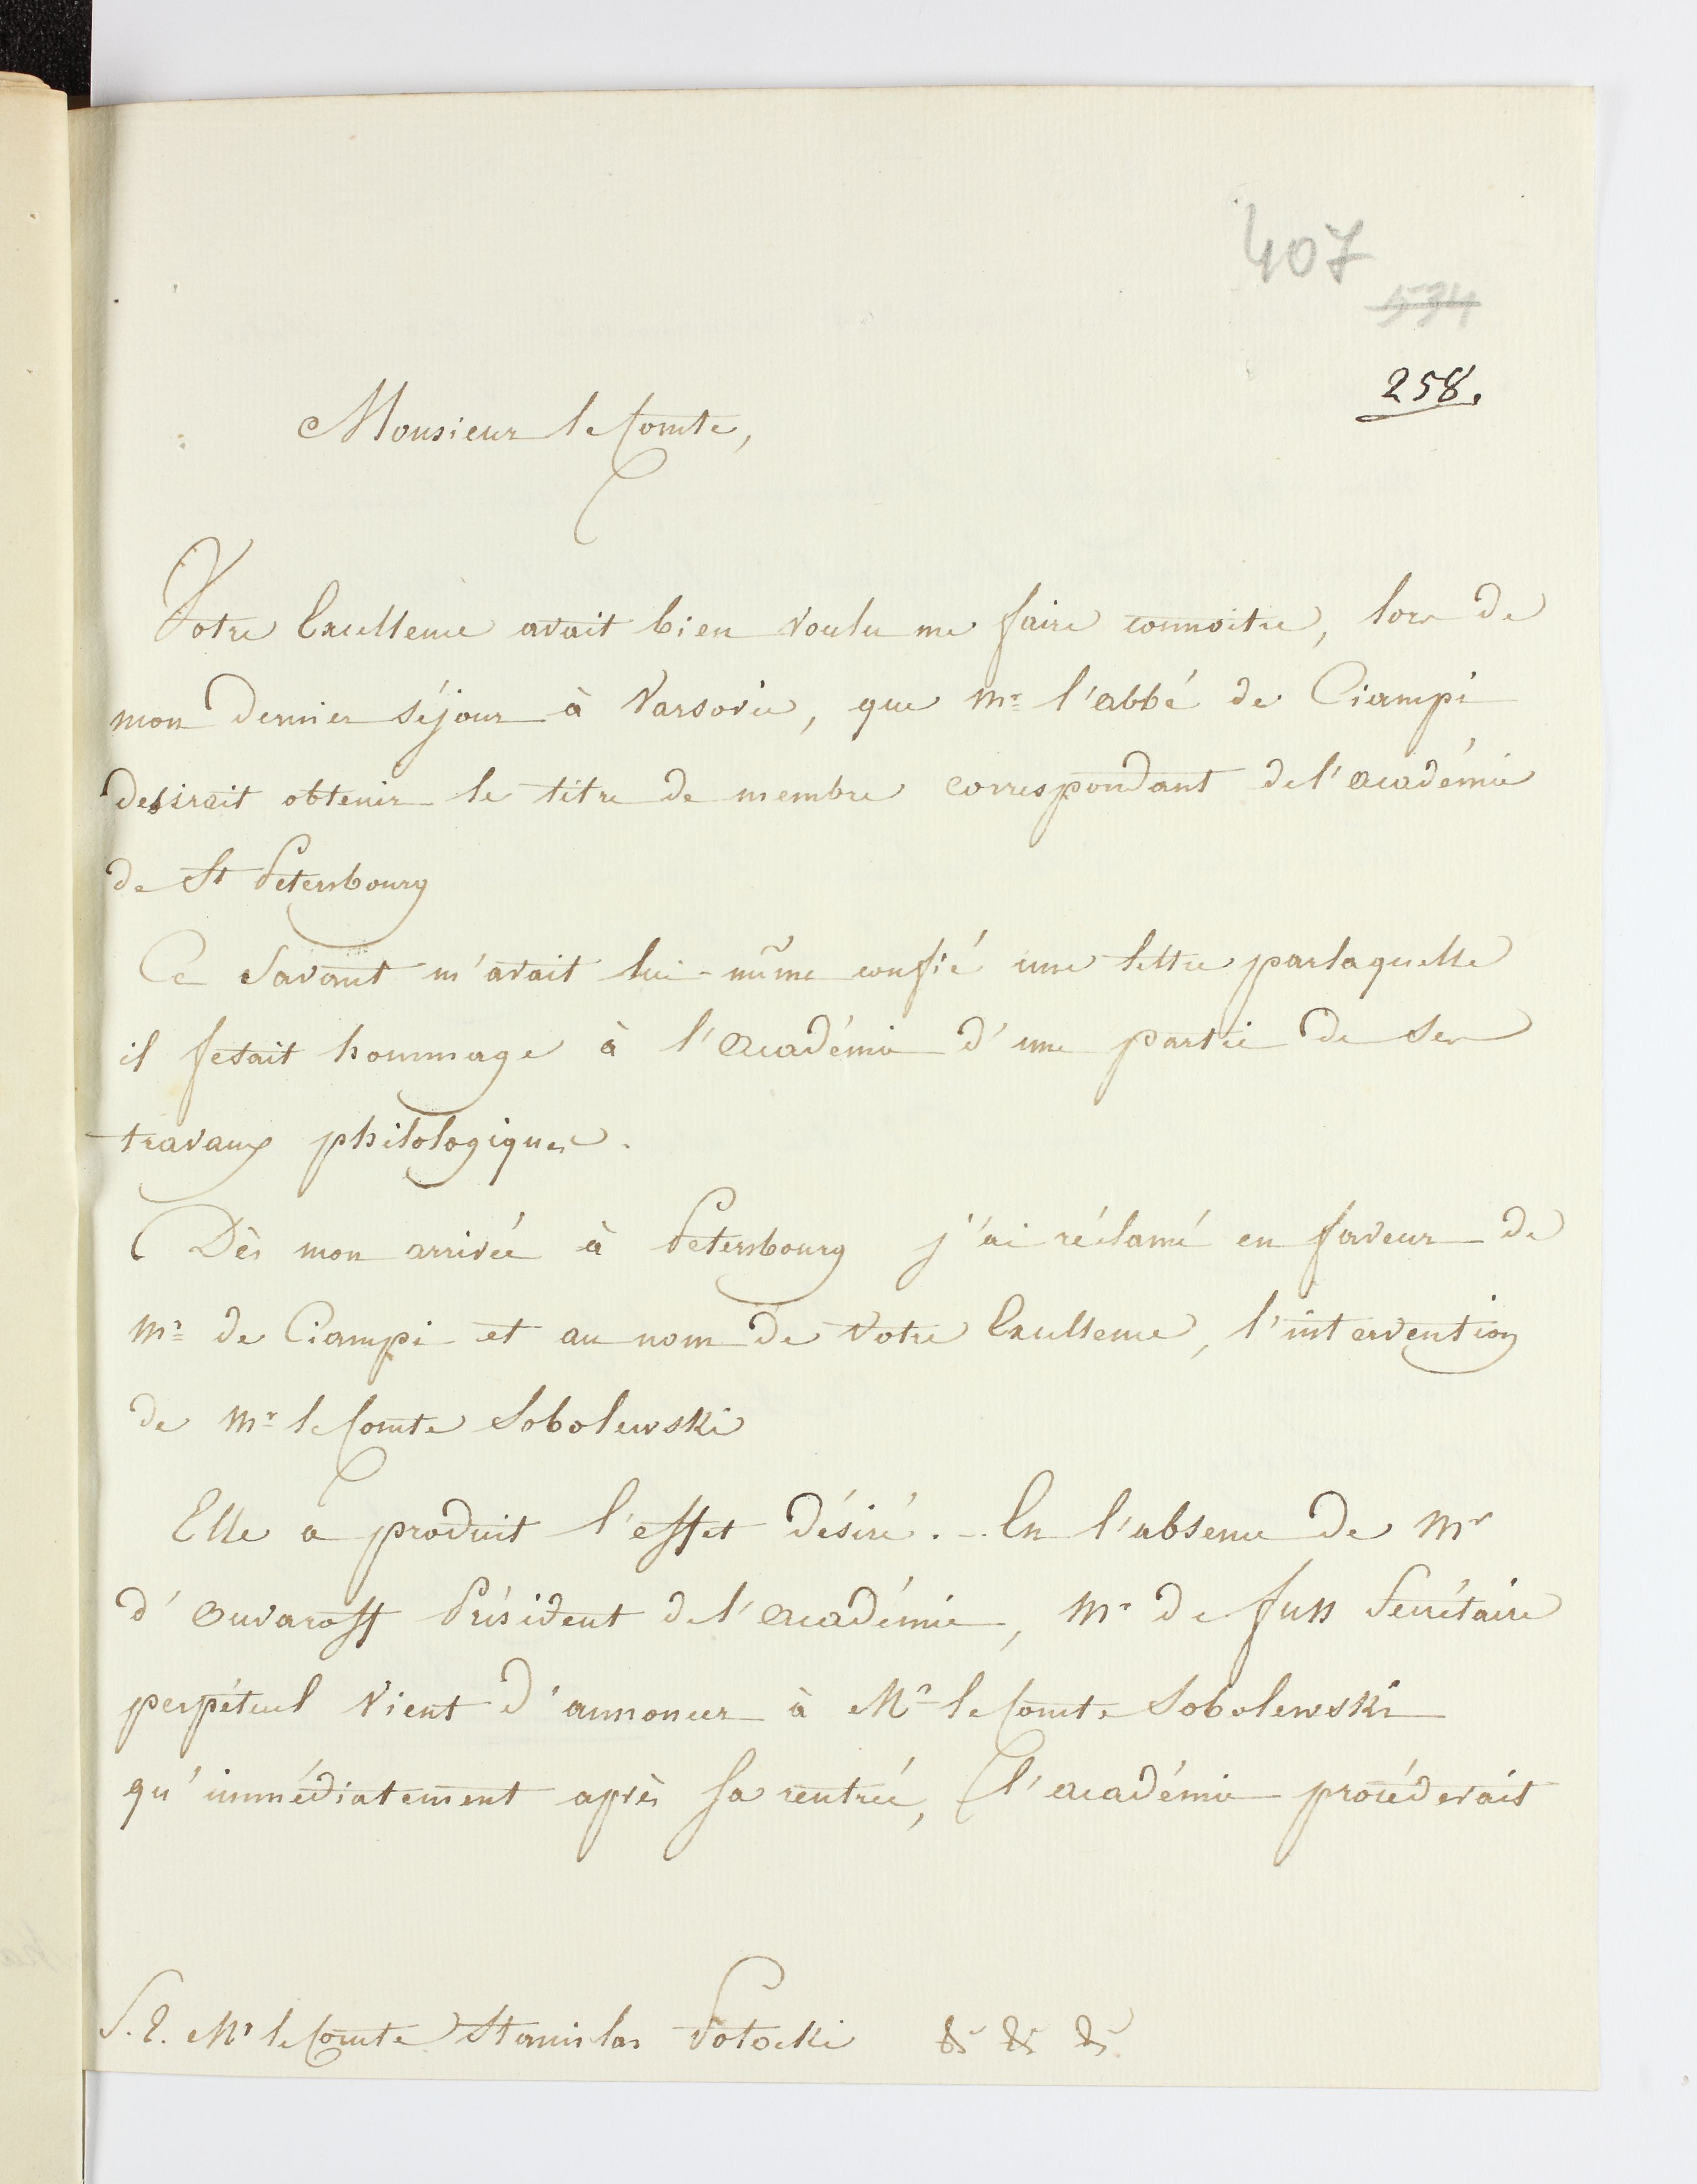 407
534
258.
Monsieur le Comte,
Votre Excellence avait bien voulu me faire connoitre, lors de
mon dernier séjour à Varsovie, que Mr l'abbé de Ciampi
desirait obtenir le titre de membre correspondant de l'académie
de St Petersbourg
Ce Savant m'avait lui-même confié une lettre par laquelle
il fesait hommage à l'Académie d'une partie de ses
travaux philologiques.
Dès mon arrivée à Petersbourg j'ai réclamé en faveur de
Mr de Ciampi et au nom de Votre Excellence, l'intervention
de Mr le Comte Sobolewski
Elle a produit l'effet désiré. - En l'absence de Mr
d'Ouvaroff Président de l'académie, Mr de Fuss Secrétaire
perpétuel vient d'annoncer à Mr le Comte Sobolewski
qu'immédiatement après sa rentrée, l'académie procéderait
S. E. Mr le Comte Stanislas Potocki &c &c &c